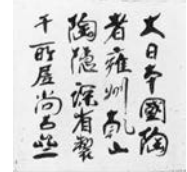 大日本國陶
者雍州乾山
陶隱深省製
于所居尚古齋